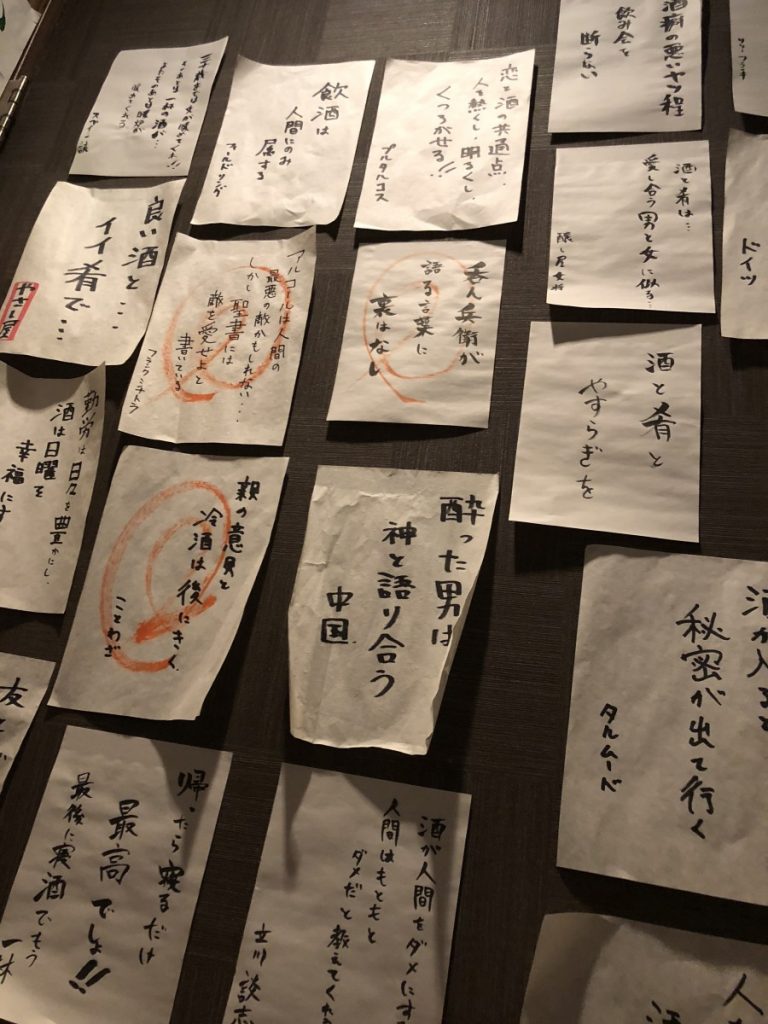 酒癖の悪いヤツ程
飲み会を
断らない
恋と酒の共通点…
人を熱くし、明るくし、
くつろがせる!!
プルタルコス
飲酒は
人間にのみ
属する
オールドリング
ドイツ
酒と肴は…
愛し合う男と女に似る…
隠し屋女将
呑ん兵衛が
語る言葉に
裏はない
アルコールは人間の
最悪の敵かもしれない…
しかし聖書には
敵を愛せよと
書いている
フランクシナトラ
良い酒と…
イイ肴で…
やさし屋
酒と肴と
やすらぎを
酔った男は
神と語り合う
中国
親の意見と
冷酒は後にきく
ことわざ
勤労は日々を豊かにし、
酒は日曜を
幸福にす
酒が入ると
秘密が出て行く
タルムード
酒が人間をダメにす
人間はもともと
ダメだと教えてくれ
立川談志
帰ったら寝るだけ
最高でしょ!!
最後に実酒でもう
一杯
友と
人
酒